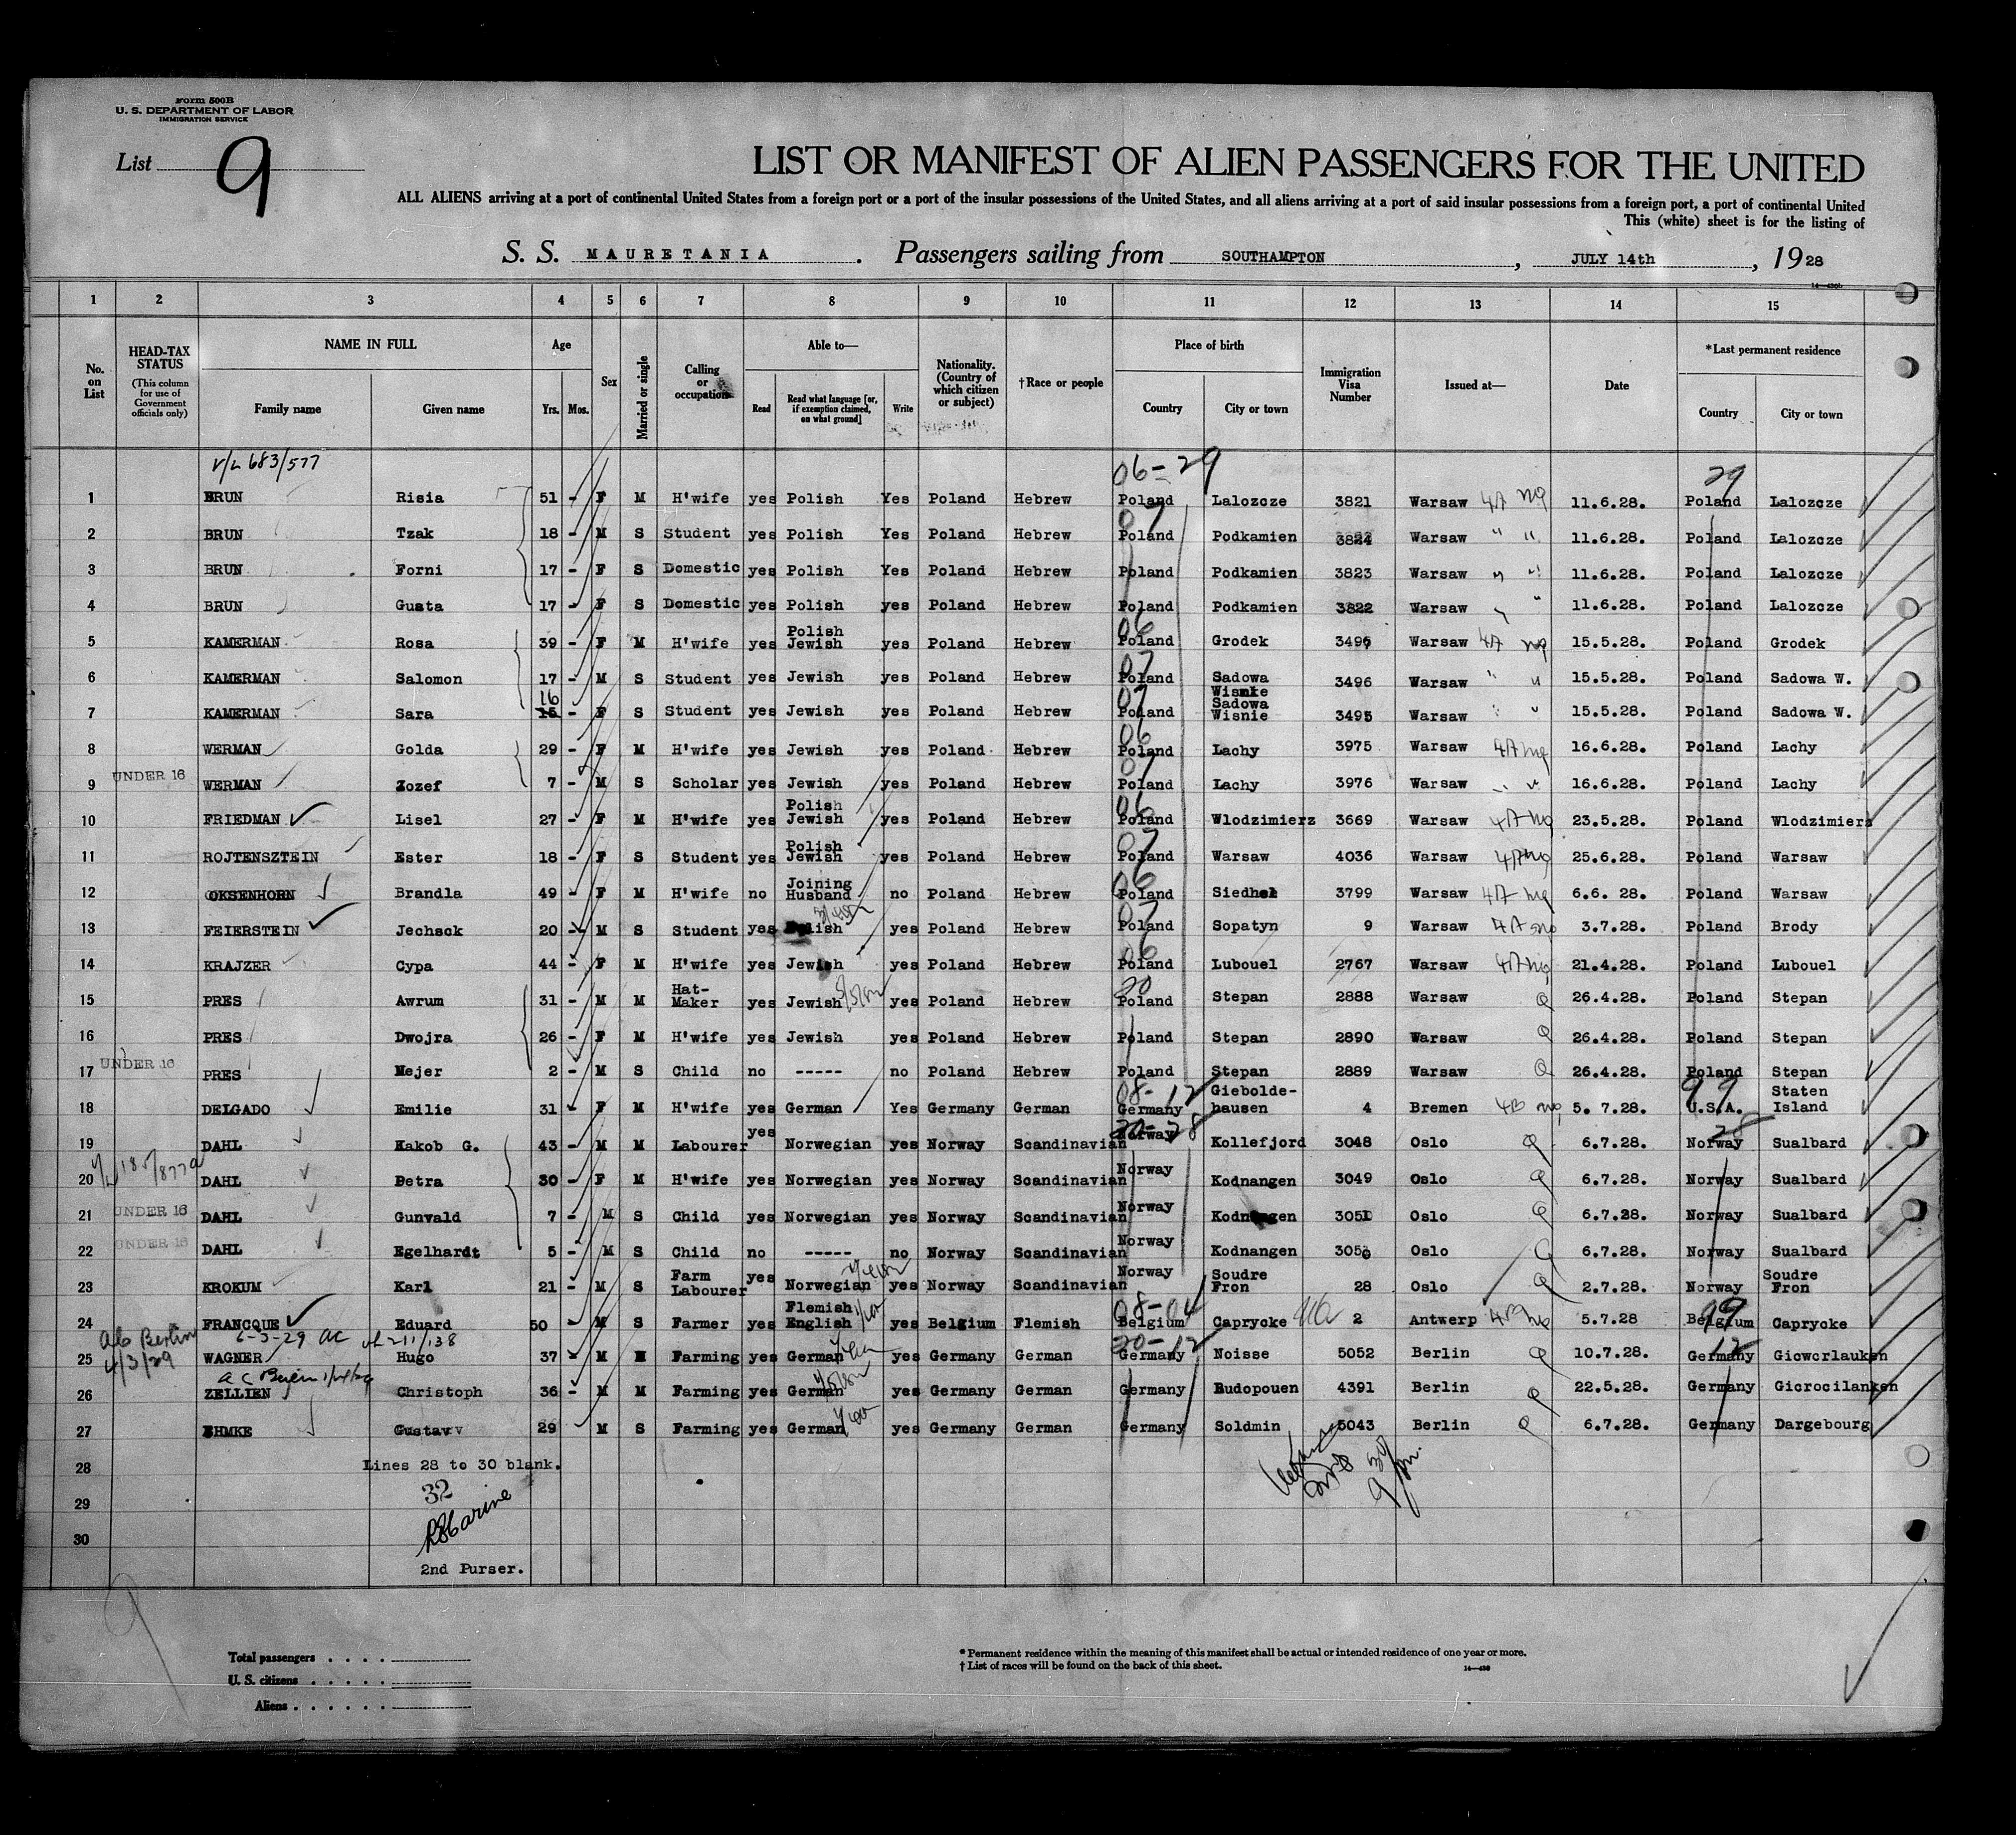 Form 500B
U. S. DEPARTMENT OF LABOR
IMMIGRATION SERVICE
List 9
LIST OR MANIFEST OF ALIEN PASSENGERS FOR THE UNITED
ALL ALIENS arriving at a port of continental United States from a foreign port or a port of the insular possessions of the United States, and all aliens arriving at a port of said insular possessions from a foreign port, a port of continental United
This (white) sheet is for the listing of
S. S. MAURETANIA. Passengers sailing from SOUTHAMPTON, JULY 14th, 1928
14—430b
1 2 3 4 5 6 7 8 9 10 11 12 13 14 15
No. on List
HEAD-TAX STATUS (This column for use of Government officials only)
NAME IN FULL Family name Given name
Age Yrs. Mos.
Sex
Married or single
Calling or occupation
Able to— Read Read what language [or, if exemption claimed, on what ground] Write
Nationality. (Country of which citizen or subject)
†Race or people
Place of birth Country City or town
Immigration Visa Number
Issued at—
Date
*Last permanent residence Country City or town
V/L 683/577 06-29 29
1 BRUN Risia 51 - F M H'wife yes Polish Yes Poland Hebrew Poland Lalozcze 3821 Warsaw 11.6.28. Poland Lalozcze
2 BRUN Tzak 18 - M S Student yes Polish Yes Poland Hebrew 07 Poland Podkamien 3824 Warsaw " " 11.6.28. Poland Lalozcze
3 BRUN Forni 17 - F S Domestic yes Polish Yes Poland Hebrew Poland Podkamien 3823 Warsaw " " 11.6.28. Poland Lalozcze
4 BRUN Gusta 17 - F S Domestic yes Polish yes Poland Hebrew Poland Podkamien 3822 Warsaw " 11.6.28. Poland Lalozcze
5 KAMERMAN Rosa 39 - F M H'wife yes Polish Jewish yes Poland Hebrew 06 Poland Grodek 3496 Warsaw 15.5.28. Poland Grodek
6 KAMERMAN Salomon 17 - M S Student yes Jewish yes Poland Hebrew 07 Poland Sadowa Wisnke 3496 Warsaw " " 15.5.28. Poland Sadowa W.
7 KAMERMAN Sara 16 - F S Student yes Jewish yes Poland Hebrew 07 Poland Sadowa Wisnie 3495 Warsaw " " 15.5.28. Poland Sadowa W.
8 WERMAN Golda 29 - F M H'wife yes Jewish yes Poland Hebrew 06 Poland Lachy 3975 Warsaw 16.6.28. Poland Lachy
9 UNDER 16 WERMAN Zozef 7 - M S Scholar yes Jewish yes Poland Hebrew 07 Poland Lachy 3976 Warsaw " " 16.6.28. Poland Lachy
10 FRIEDMAN Lisel 27 - F M H'wife yes Polish Jewish yes Poland Hebrew 06 Poland Wlodzimierz 3669 Warsaw 23.5.28. Poland Wlodzimierz
11 ROJTENSZTEIN Ester 18 - F S Student yes Polish Jewish yes Poland Hebrew 07 Poland Warsaw 4036 Warsaw 25.6.28. Poland Warsaw
12 OKSENHORN Brandla 49 - F M H'wife no Joining Husband no Poland Hebrew 06 Poland Siedhel 3799 Warsaw 6.6. 28. Poland Warsaw
13 FEIERSTEIN Jechsok 20 - M S Student yes Polish yes Poland Hebrew 07 Poland Sopatyn 9 Warsaw 3.7.28. Poland Brody
14 KRAJZER Cypa 44 - F M H'wife yes Jewish yes Poland Hebrew 06 Poland Lubouel 2767 Warsaw 21.4.28. Poland Lubouel
15 PRES Awrum 31 - M M Hat-Maker yes Jewish yes Poland Hebrew 20 Poland Stepan 2888 Warsaw 26.4.28. Poland Stepan
16 PRES Dwojra 26 - F M H'wife yes Jewish yes Poland Hebrew Poland Stepan 2890 Warsaw 26.4.28. Poland Stepan
17 UNDER 16 PRES Mejer 2 - M S Child no ----- no Poland Hebrew Poland Stepan 2889 Warsaw 26.4.28. Poland Stepan
18 DELGADO Emilie 31 - F M H'wife yes German Yes Germany German 08-12 Germany Giebolde-hausen 4 Bremen 5. 7.28. 99 U.S.A. Staten Island
19 DAHL Kakob G. 43 - M M Labourer yes Norwegian yes Norway Scandinavian Norway Kollefjord 3048 Oslo 6.7.28. Norway Sualbard
20 DAHL Petra 30 - F M H'wife yes Norwegian yes Norway Scandinavian Norway Kodnangen 3049 Oslo 6.7.28. Norway Sualbard
21 UNDER 16 DAHL Gunvald 7 - M S Child yes Norwegian yes Norway Scandinavian Norway Kodnangen 3051 Oslo 6.7.28. Norway Sualbard
22 UNDER 16 DAHL Egelhardt 5 - M S Child no ----- no Norway Scandinavian Norway Kodnangen 3050 Oslo 6.7.28. Norway Sualbard
23 KROKUM Karl 21 - M S Farm Labourer yes Norwegian yes Norway Scandinavian Norway Soudre Fron 28 Oslo 2.7.28. Norway Soudre Fron
24 FRANCQUE Eduard 50 - M S Farmer yes Flemish English yes Belgium Flemish Belgium Caprycke 2 Antwerp 5.7.28 99 Belgium Caprycke
6-3-29 AC
25 WAGNER Hugo 37 - M M Farming yes German yes Germany German 20-12 Germany Noisse 5052 Berlin 10.7.28. 12 Germany Giowcrlauken
26 ZELLIEN Christoph 36 - M M Farming yes German yes Germany German Germany Budopouen 4391 Berlin 22.5.28. Germany Gicrocilanken
27 EHMKE Gustav 29 M S Farming yes German yes Germany German Germany Soldmin 5043 Berlin 6.7.28. Germany Dargebourg
28 Lines 28 to 30 blank.
29 32
30
2nd Purser.
9
Total passengers . . . .
U. S. citizens . . . . .
Aliens . . . . . .
* Permanent residence within the meaning of this manifest shall be actual or intended residence of one year or more.
† List of races will be found on the back of this sheet.
14—430